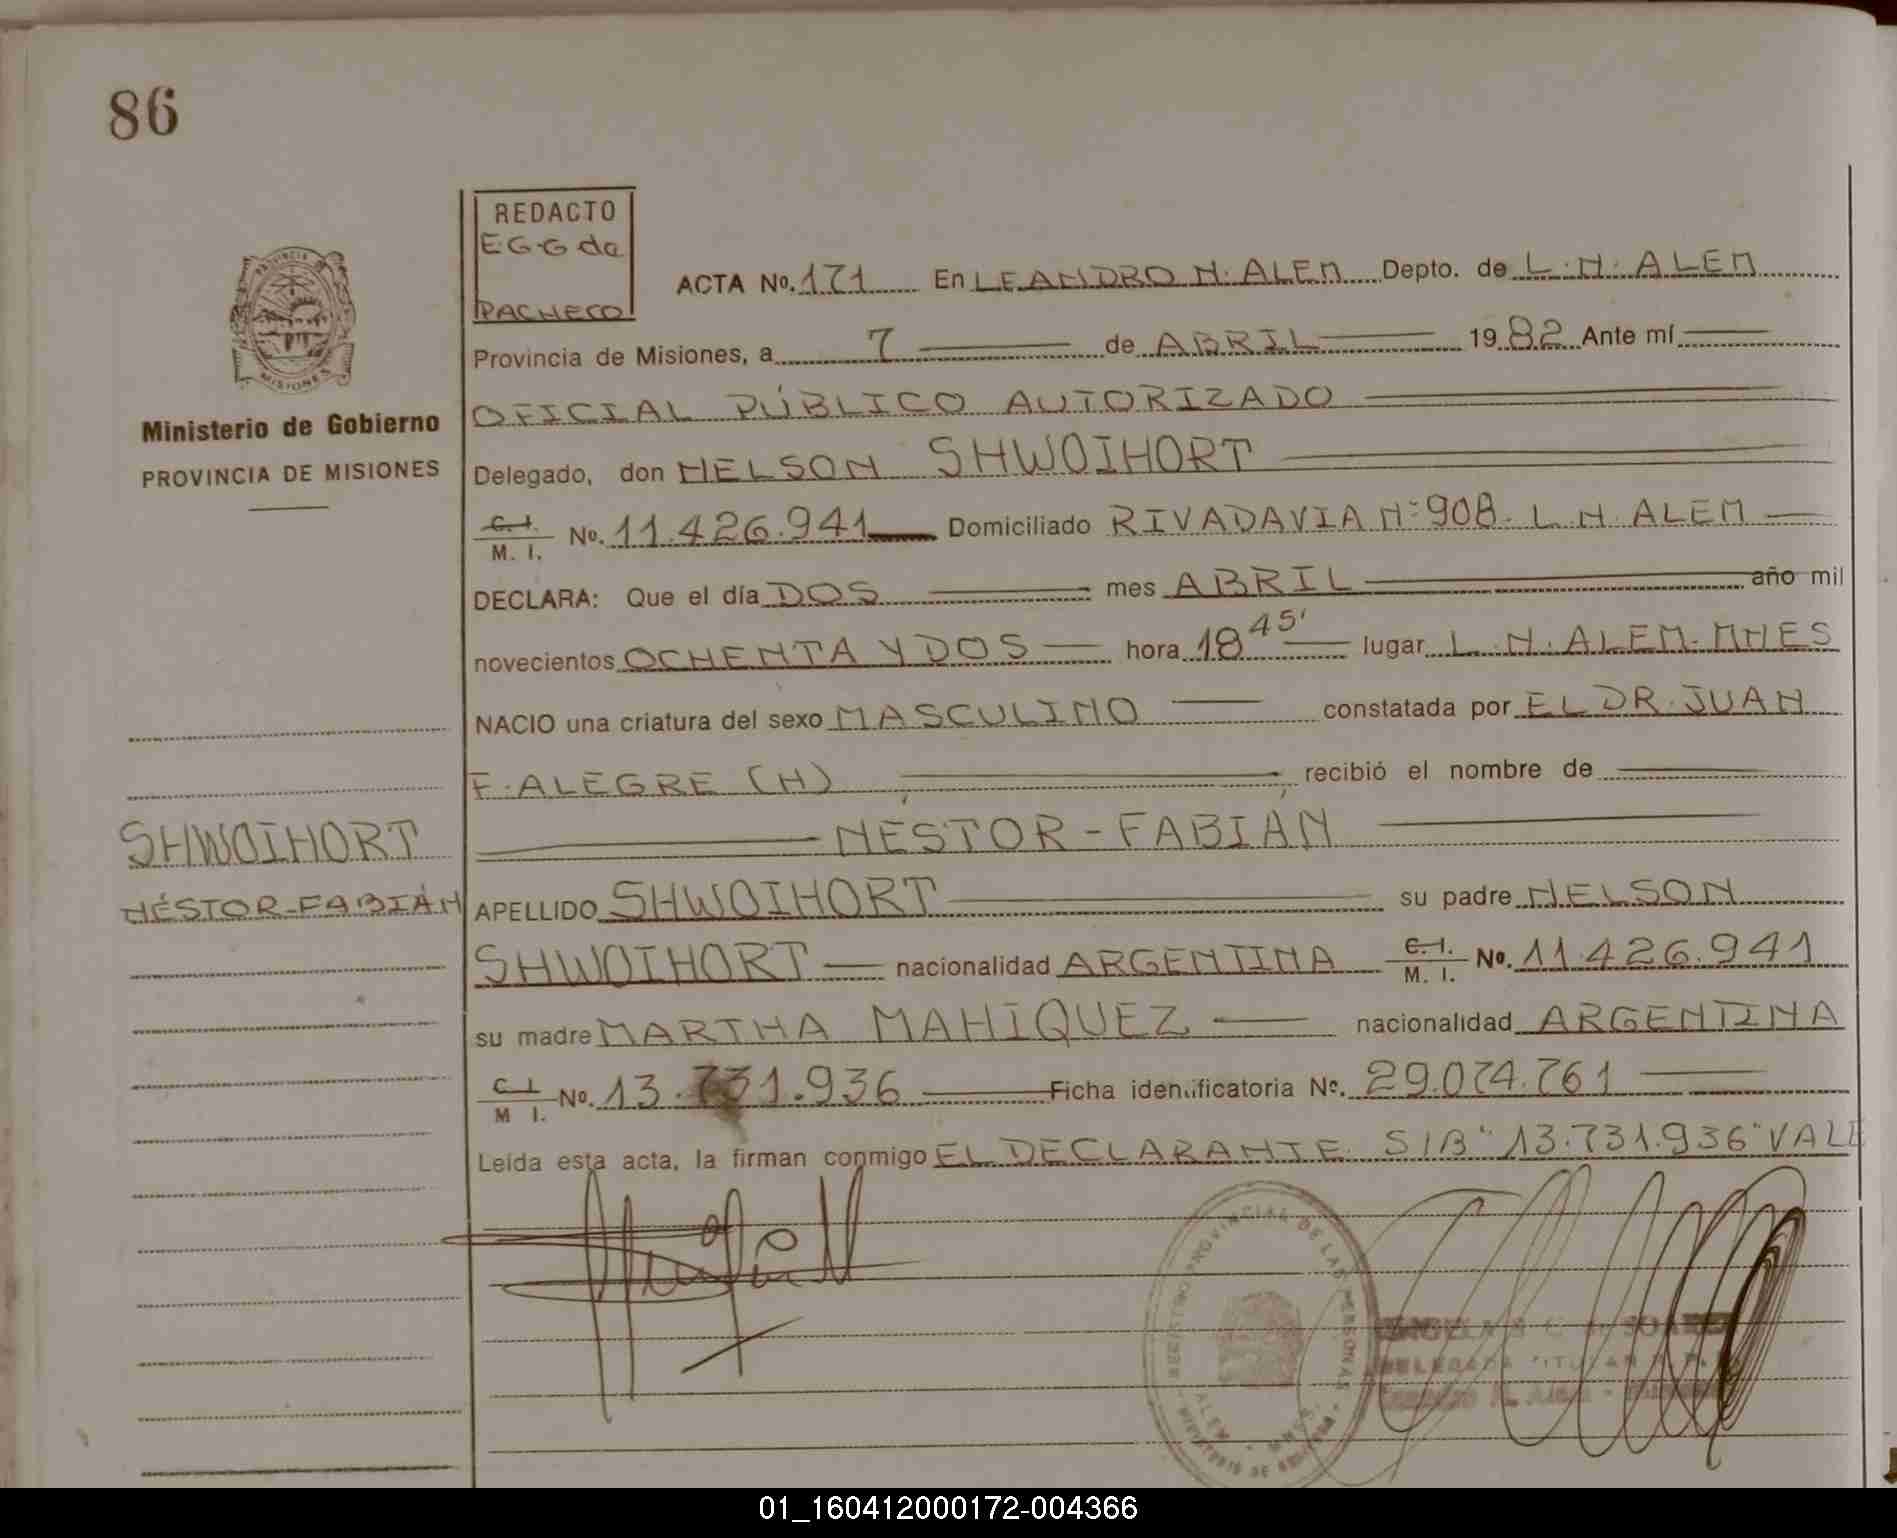 86
REDACTO
E.G.G de
PACHECO
ACTA No. 171 En LEANDRO N. ALEM Depto. de L. N. ALEM
Provincia de Misiones, a 7 de ABRIL 1982 Ante mí
OFICIAL PÚBLICO AUTORIZADO
PROVINCIA
MISIONES
Ministerio de Gobierno
PROVINCIA DE MISIONES
Delegado, don NELSON SHWOIHORT
C. I.
M. I. No. 11.426.941 Domiciliado RIVADAVIA Nº 908. L. N. ALEM
DECLARA: Que el día DOS mes ABRIL año mil
novecientos OCHENTA Y DOS hora 18 45' lugar L. N. ALEM. MNES
NACIO una criatura del sexo MASCULINO constatada por EL DR. JUAN
F. ALEGRE (H) recibió el nombre de
NÉSTOR-FABIÁN
SHWOIHORT
NÉSTOR-FABIÁN
APELLIDO SHWOIHORT su padre NELSON
SHWOIHORT nacionalidad ARGENTINA C. I. M. I. No. 11.426.941
su madre MARTHA MAHIQUEZ nacionalidad ARGENTINA
C I
M I. No. 13.731.936 Ficha identificatoria Nº. 29.074.761
Leída esta acta, la firman conmigo EL DECLARANTE. S/B "13.731.936" VALE
REGISTRO PROVINCIAL DE LAS PERSONAS
ALEM - MNES.
01_160412000172-004366